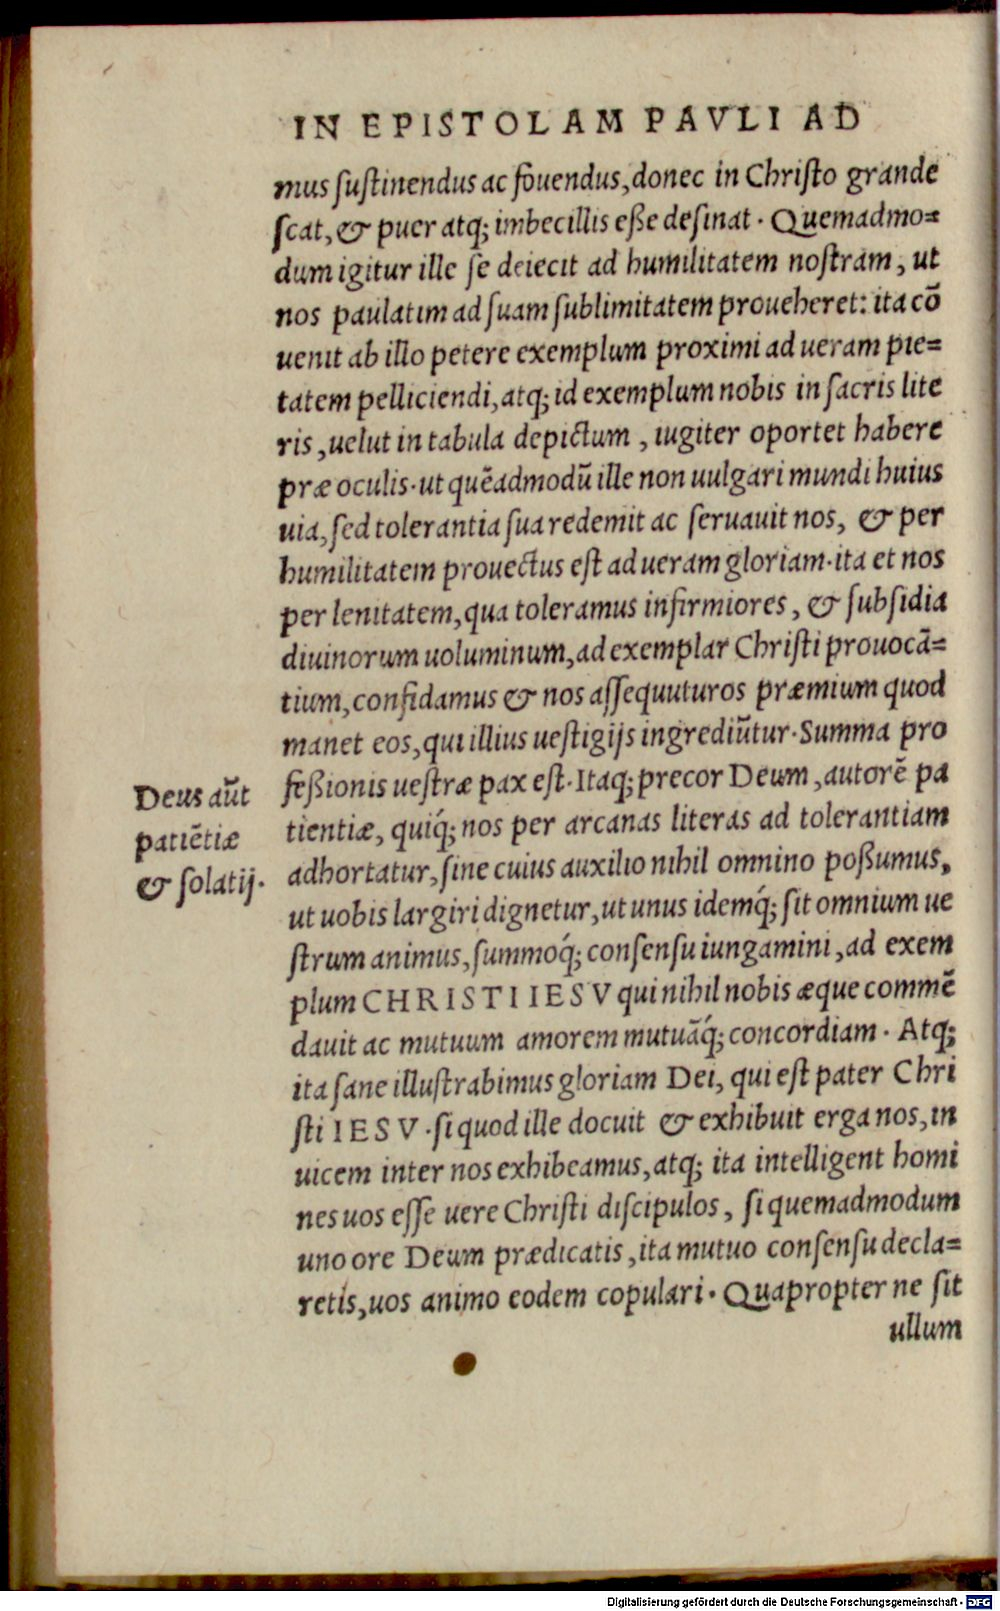 IN EPISTOLAM PAVLI AD
mus ſuſtinendus ac fouendus, donec in Chriſto grande
ſcat, & puer atq; imbecillis eße deſinat · Quemadmo=
dum igitur ille ſe deiecit ad humilitatem noſtram, ut
nos paulatim ad ſuam ſublimitatem proueheret: ita cō
uenit ab illo petere exemplum proximi ad ueram pie=
tatem pelliciendi, atq; id exemplum nobis in ſacris lite
ris, uelut in tabula depictum, iugiter oportet habere
præ oculis· ut quēadmodū ille non uulgari mundi huius
uia, ſed tolerantia ſua redemit ac ſeruauit nos, & per
humilitatem prouectus eſt ad ueram gloriam· ita et nos
per lenitatem, qua toleramus infirmiores, & ſubſidia
diuinorum uoluminum, ad exemplar Chriſti prouocā=
tium, confidamus & nos aſſequuturos præmium quod
manet eos, qui illius ueſtigijs ingrediūtur· Summa pro
feßionis ueſtræ pax eſt· Itaq; precor Deum, autorē pa
tientiæ, quiq́; nos per arcanas literas ad tolerantiam
adhortatur, ſine cuius auxilio nihil omnino poßumus,
ut uobis largiri dignetur, ut unus idemq́; ſit omnium ue
ſtrum animus, ſummoq́; conſenſu iungamini, ad exem
plum CHRISTI IESV qui nihil nobis æque commē
dauit ac mutuum amorem mutuāq́; concordiam · Atq;
ita ſane illuſtrabimus gloriam Dei, qui eſt pater Chri
ſti IESV · ſi quod ille docuit & exhibuit erga nos, in
uicem inter nos exhibeamus, atq; ita intelligent homi
nes uos eſſe uere Chriſti diſcipulos, ſi quemadmodum
uno ore Deum prædicatis, ita mutuo conſenſu decla=
retis, uos animo eodem copulari · Quapropter ne ſit
ullum
Deus aūt
patiētiæ
& ſolatij·
Digitalisierung gefördert durch die Deutsche Forschungsgemeinschaft - DFG